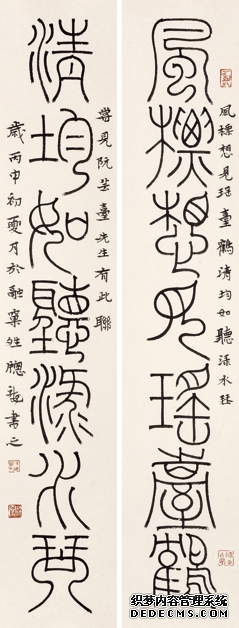 風標想見瑤臺鶴
風標想見瑤臺鶴清均如聽淥水琴
清均如聽淥水琴
嘗見阮芸臺先生有此聯
歲丙申初夏月於融
書之
织梦内容管理系统
DEDECMS.COM